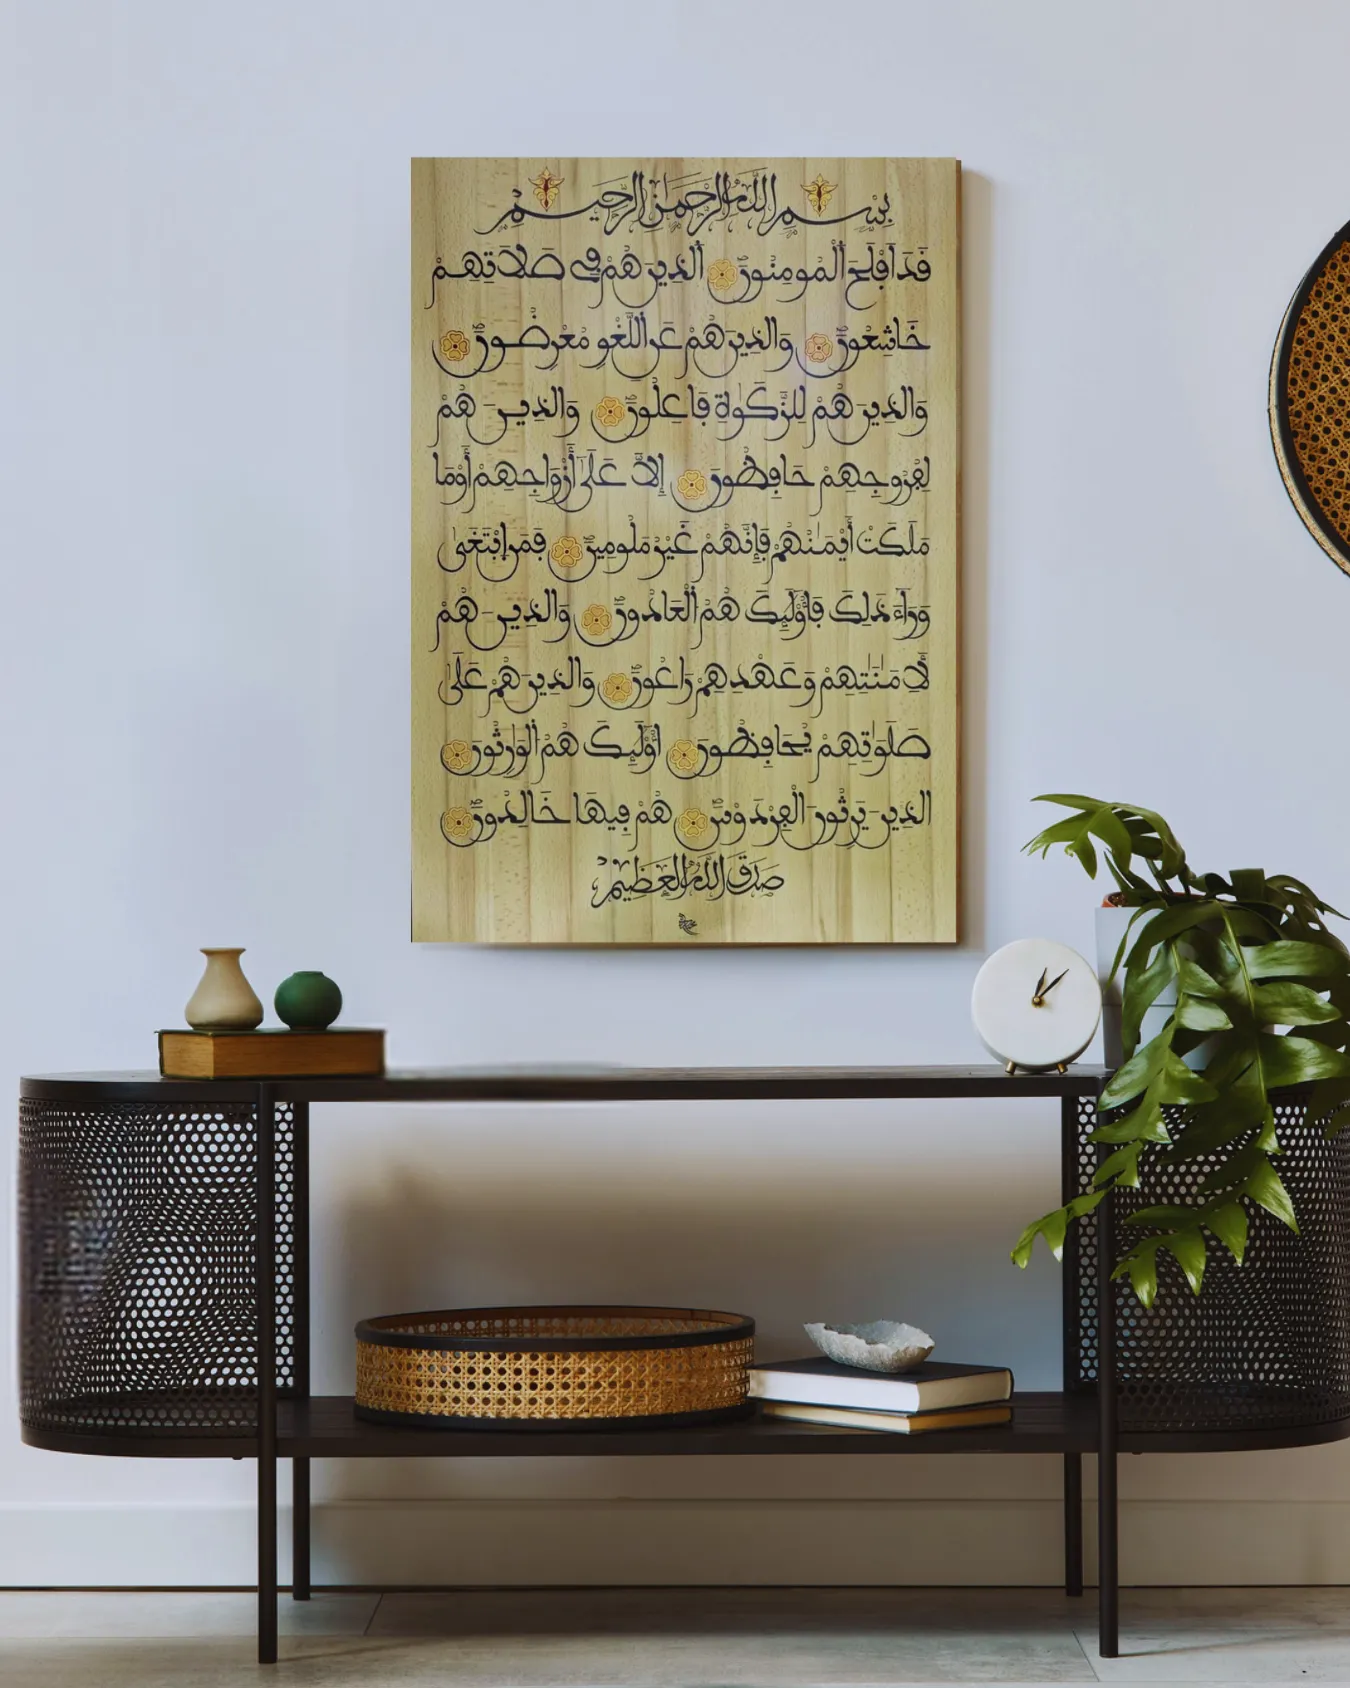 بِسْمِ اللَّهِ الرَّحْمَنِ الرَّحِيمِ
قَدَ اَفْلَحَ اَلْمُومِنُونَ اَلذِينَ هُمْ فِي صَلَاتِهِمْ
خَاشِعُونَ وَالذِينَ هُمْ عَنِ اللَّغْوِ مُعْرِضُونَ
وَالذِينَ هُمْ لِلزَّكَوٰةِ فَاعِلُونَ وَالذِينَ هُمْ
لِفُرُوجِهِمْ حَافِظُونَ إِلَّا عَلَىٰ أَزْوَاجِهِمْ أَوْ مَا
مَلَكَتْ أَيْمَٰنُهُمْ فَإِنَّهُمْ غَيْرُ مَلُومِينَ فَمَنِ اِبْتَغَىٰ
وَرَآءَ ذَٰلِكَ فَأُوْلَٰئِكَ هُمُ اَلْعَادُونَ وَالذِينَ هُمْ
لِأَمَٰنَٰتِهِمْ وَعَهْدِهِمْ رَاعُونَ وَالذِينَ هُمْ عَلَىٰ
صَلَوَٰتِهِمْ يُحَافِظُونَ أُوْلَٰئِكَ هُمُ اُلْوَٰرِثُونَ
الذِينَ يَرِثُونَ اَلْفِرْدَوْسَ هُمْ فِيهَا خَالِدُونَ
صَدَقَ اللَّهُ الْعَظِيمُ